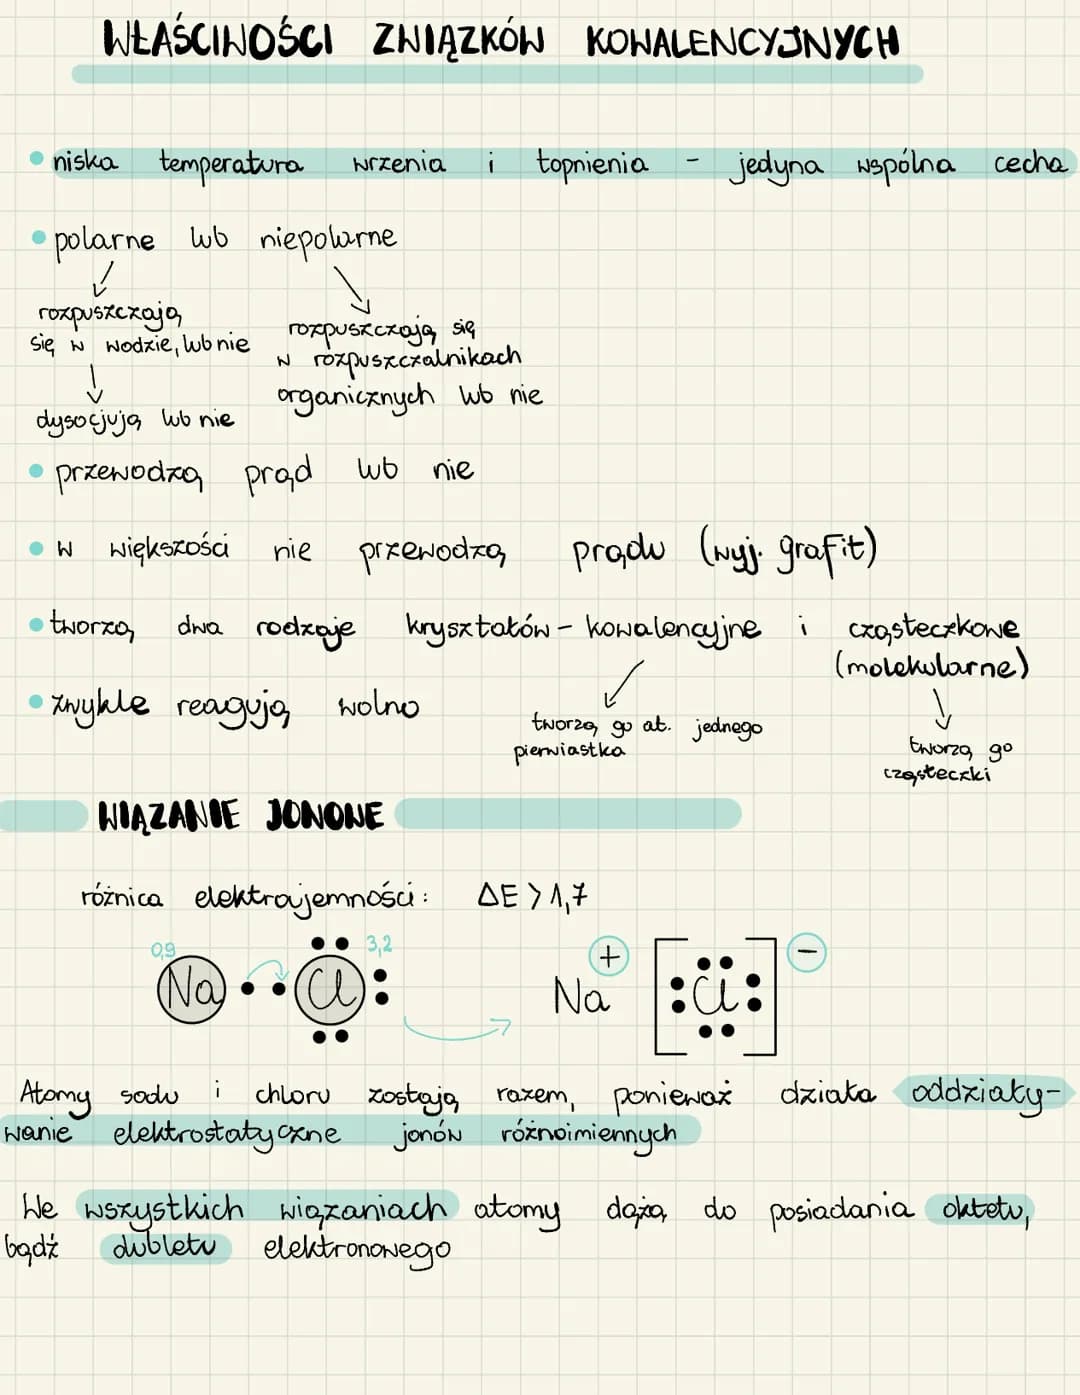 WŁAŚCIWOŚCI ZWIĄZKÓW KOWALENCYJNYCH
• niska temperatura wrzenia i topnienia - jedyna wspólna cecha
• polarne lub niepolarne
rozpuszczają
się w wodzie, lub nie
rozpuszczają się
w rozpuszczalnikach
organicznych lub nie
dysocjują lub nie
• przewodzą prąd lub nie
• w większości nie przewodzą prądu (wyj. grafit)
• tworzą dwa rodzaje kryształów - kowalencyjne i cząsteczkowe
(molekularne)
• zwykle reagują wolno
tworzą go at. jednego
pierwiastka
tworzą go
cząsteczki
WIĄZANIE JONOWE
różnica elektroujemności: ΔE > 1,7
0,9 3,2
Na Cl Na + [Cl] -
Atomy sodu i chloru zostają razem, ponieważ działa oddziały-
wanie elektrostatyczne jonów różnoimiennych
We wszystkich wiązaniach atomy dążą do posiadania oktetu,
bądź dubletu elektronowego